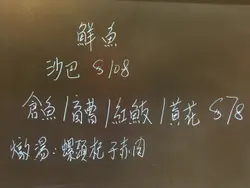 鮮魚
沙巴 $108
倉魚/育曹/紅鮫/黃花 $78
燉湯:螺頭杞子赤肉